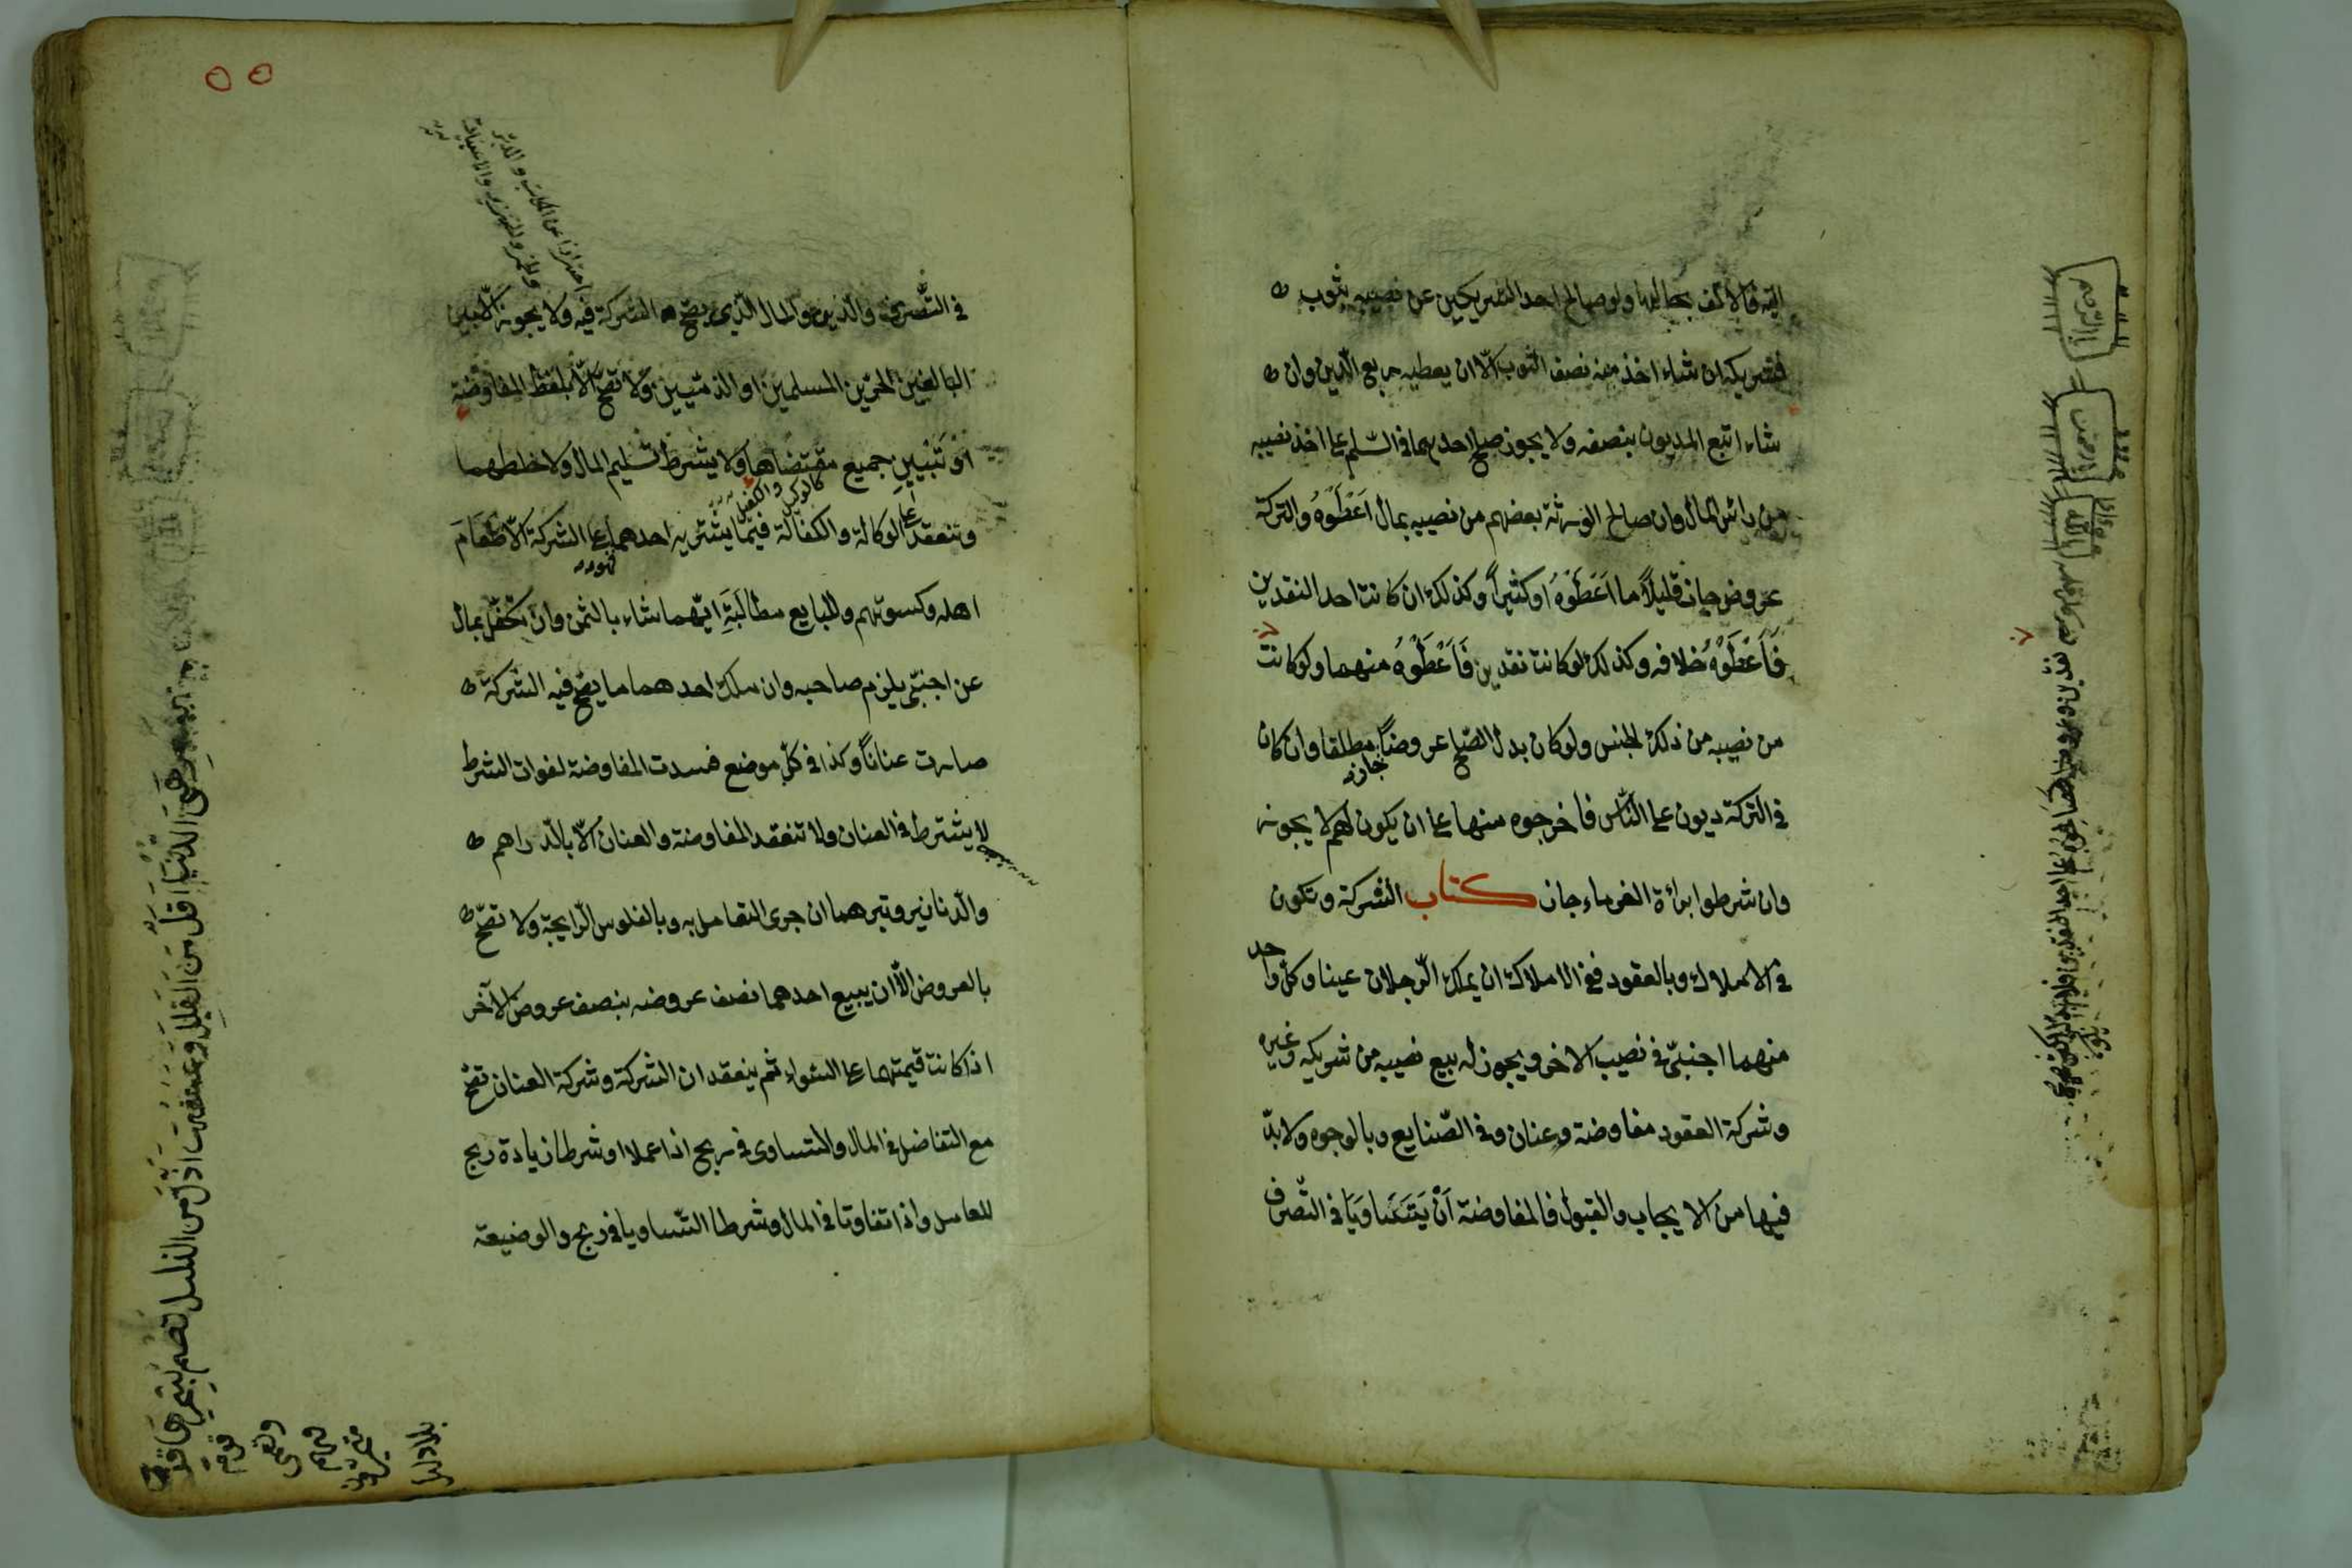 اليه فالالف بحالها ولو صالح احد الشريكين عن نصيبه بثوب
فشريكه ان شاء اخذ منه نصف الثوب الّا ان يعطيه ربع الدّين وان
شاء اتبع المديون بنصفه ولا يجوز صلح احدهما فى السّلم على اخذ نصيبه
من رأس المال وان صالح الورثة بعضهم من نصيبه بمال اَعْطَوْهُ والتركة
عروض جاز قليلاً ما اَعَطَوْهُ اوكثيراً وكذلك ان كانت احد النقدين
فَاَعْطَوْهُ خلافه وكذلك لوكانت نقدين فَاَعْطَوْهُ منهما ولوكانت
من نصيبه من ذلك الجنس ولوكان بدل الصّلح عروضاً مطلقا وان كان
جاز
فى التركة ديون على النّاس فاخرجوه منها على ان يكون لهم لا يجوز
وان شرطوا براءة الغرماء جاز كتاب الشركة وتكون
فى الاملاك وبالعقود ففى الاملاك ان يملك الرّجلان عينا وكلّ واحد
منهما اجنبىّ فى نصيب الاخر ويجوز له بيع نصيبه من شريكه وغيره
وشركة العقود مفاوضة وعنان وفى الصّنايع وبالوجوه ولا بدّ
فيها من الايجاب والقبول فالمفاوضة اَنْ يَتَسَاوَيَا فى التّصرّف
٥٥
فى التّصرف والدّين والمال الّذى يصحّ الشركة فيه ولا يجوز الّا بين
البالغين الحرّين المسلمين او الذمّيين ولا تصحّ الّا بلفظ المفاوضة
او تبيين جميع مقتضاها ولا يشترط تسليم المال ولا خلطهما
كالوكيل والكفيل
وتنعقد على الوكالة والكفالة فيما يشتريه احدهما على الشركة الّا طَعَامَ
اهله وكسوتهم وللبايع مطالبَةِ ايّهما شاء بالثمن وان تكفّل بمال
عن اجنبىّ يلزم صاحبه وان ملك احدهما ما يصحّ فيه الشركة
صارت عناناً وكذا فى كلّ موضع فسدت المفاوضة لفوات الشرط
لا يشترط فى العنان ولا تنعقد المفاوضة والعنان الّا بالدّراهم
والدّنانير وتبرهما ان جرى التعامل به وبالفلوس الرّايجة ولا تصحّ
بالعروض الّا ان يبيع احدهما نصف عروضه بنصف عروض الآخر
اذا كانت قيمتهما على السّواء ثم ينعقدان الشركة وشركة العنان تصحّ
مع التفاضل فى المال والتساوى فى ربح اذا عملا او شرطا زيادة ربح
للعامل واذا تفاوتا فى المال وشرطا التّساويا فى ربح والوضيعة
هِىَ الدُّنْيَا اَقَلُّ مِنَ القَلِيلِ وَعَاشِقُهَا اَذَلُّ مِنَ الذليل تُصِمُّ بِسِحْرِهَا قَوْماً